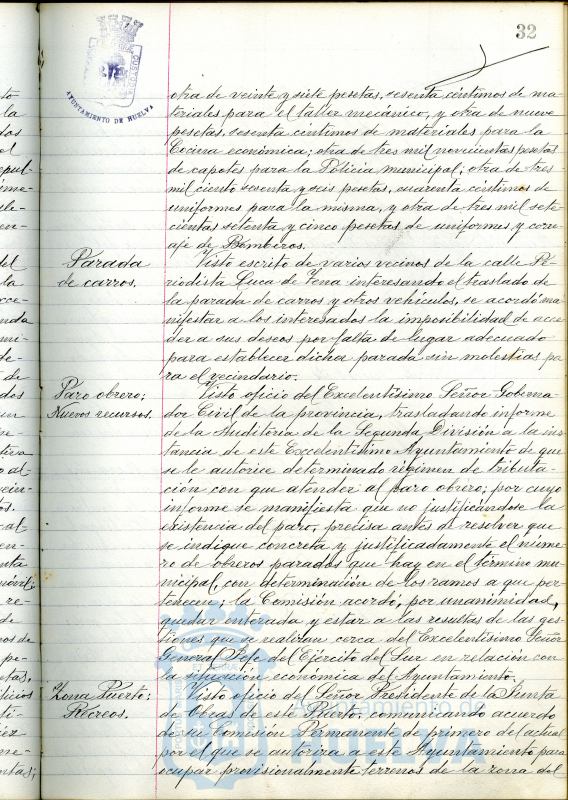 32
AYUNTAMIENTO DE HUELVA
otra de veinte y siete pesetas, sesenta céntimos de ma-
teriales para el taller mecánico, y otra de nueve
pesetas, sesenta céntimos de materiales para la
Cocina económica; otra de tres mil novecientas pesetas
de capotes para la Policía municipal; otra de tres
mil ciento sesenta y seis pesetas, cuarenta céntimos de
uniformes para la misma, y otra de tres mil sete-
cientas setenta y cinco pesetas de uniformes y corre-
aje de Bomberos.
Parada
de carros.
Visto escrito de varios vecinos de la calle Pe-
riodista Luca de Tena interesando el traslado de
la parada de carros y otros vehículos, se acordó ma-
nifestar a los interesados la imposibilidad de acce-
der a sus deseos por falta de lugar adecuado
para establecer dicha parada sin molestias pa-
ra el vecindario.
Paro obrero:
Nuevos recursos.
Visto oficio del Excelentísimo Señor Goberna-
dor Civil de la provincia, trasladando informe
de la Auditoría de la Segunda División a la ins-
tancia de este Excelentísimo Ayuntamiento de que
se le autorice determinado régimen de tributa-
ción con que atender al paro obrero; por cuyo
informe se manifiesta que no justificándose la
existencia del paro, precisa antes de resolver que
se indique concreta y justificadamente el núme-
ro de obreros parados que hay en el término mu-
nicipal, con determinación de los ramos a que per-
tenecen; la Comisión acordó, por unanimidad,
quedar enterada y estar a las resultas de las ges-
tiones que se realizan cerca del Excelentísimo Señor
General Jefe del Ejército del Sur en relación con
la situación económica del Ayuntamiento.
Zona Puerto:
Recreos.
Visto oficio del Señor Presidente de la Junta
de Obras de este Puerto, comunicando acuerdo
de su Comisión Permanente de primero del actual
por el que se autoriza a este Ayuntamiento para
ocupar provisionalmente terrenos de la zona del
Ayuntamiento de
HUELVA